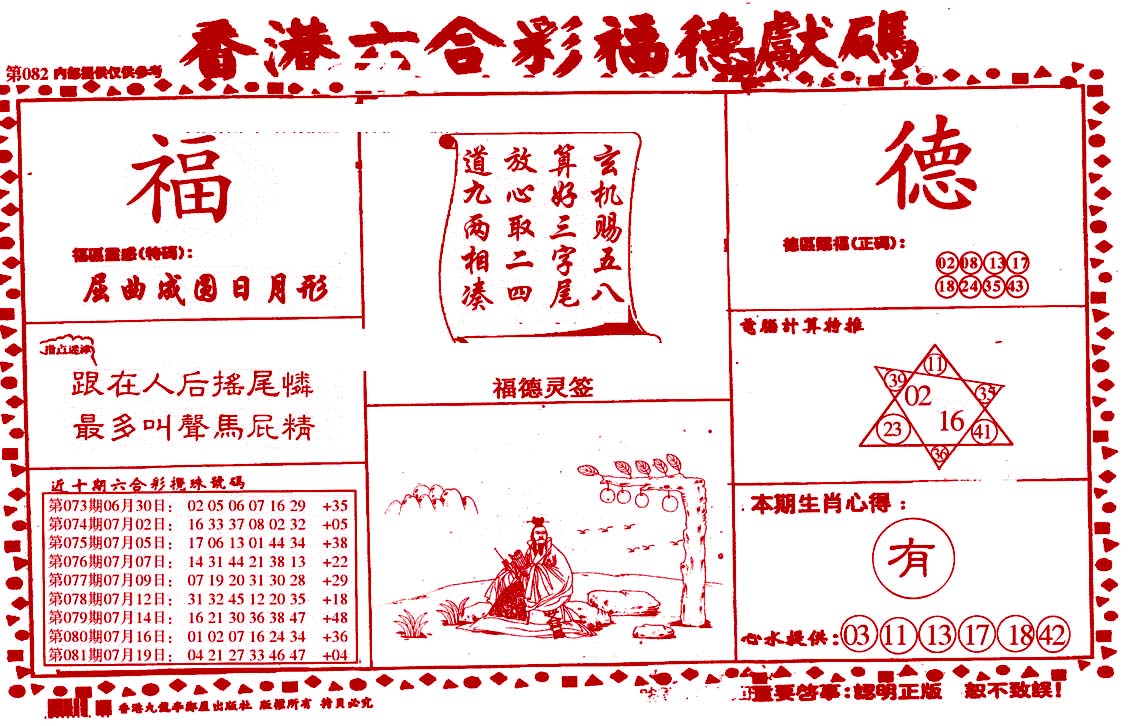 香港六合彩福德獻碼
第082 内部提供仅供参考
福
福區靈感(特碼):
屈曲成圆日月形
指点迷津
跟在人后搖尾憐
最多叫聲馬屁精
近十期六合彩攪珠號碼
第073期06月30日: 02 05 06 07 16 29 +35
第074期07月02日: 16 33 37 08 02 32 +05
第075期07月05日: 17 06 13 01 44 34 +38
第076期07月07日: 14 31 44 21 38 13 +22
第077期07月09日: 07 19 20 31 30 28 +29
第078期07月12日: 31 32 45 12 20 35 +18
第079期07月14日: 16 21 30 36 38 47 +48
第080期07月16日: 01 02 07 16 24 34 +36
第081期07月19日: 04 21 27 33 46 47 +04
玄机赐五八
算好三字尾
放心取二四
道九两相凑
福德灵签
德
德區賜福(正碼):
02 08 13 17
18 24 35 43
電腦計算特推
11
39 02 35
16
23 41
36
本期生肖心得:
有
心水提供:03 11 13 17 18 42
香港九龍 出版社 版權所有
重要啓事:認明正版 恕不致誤!